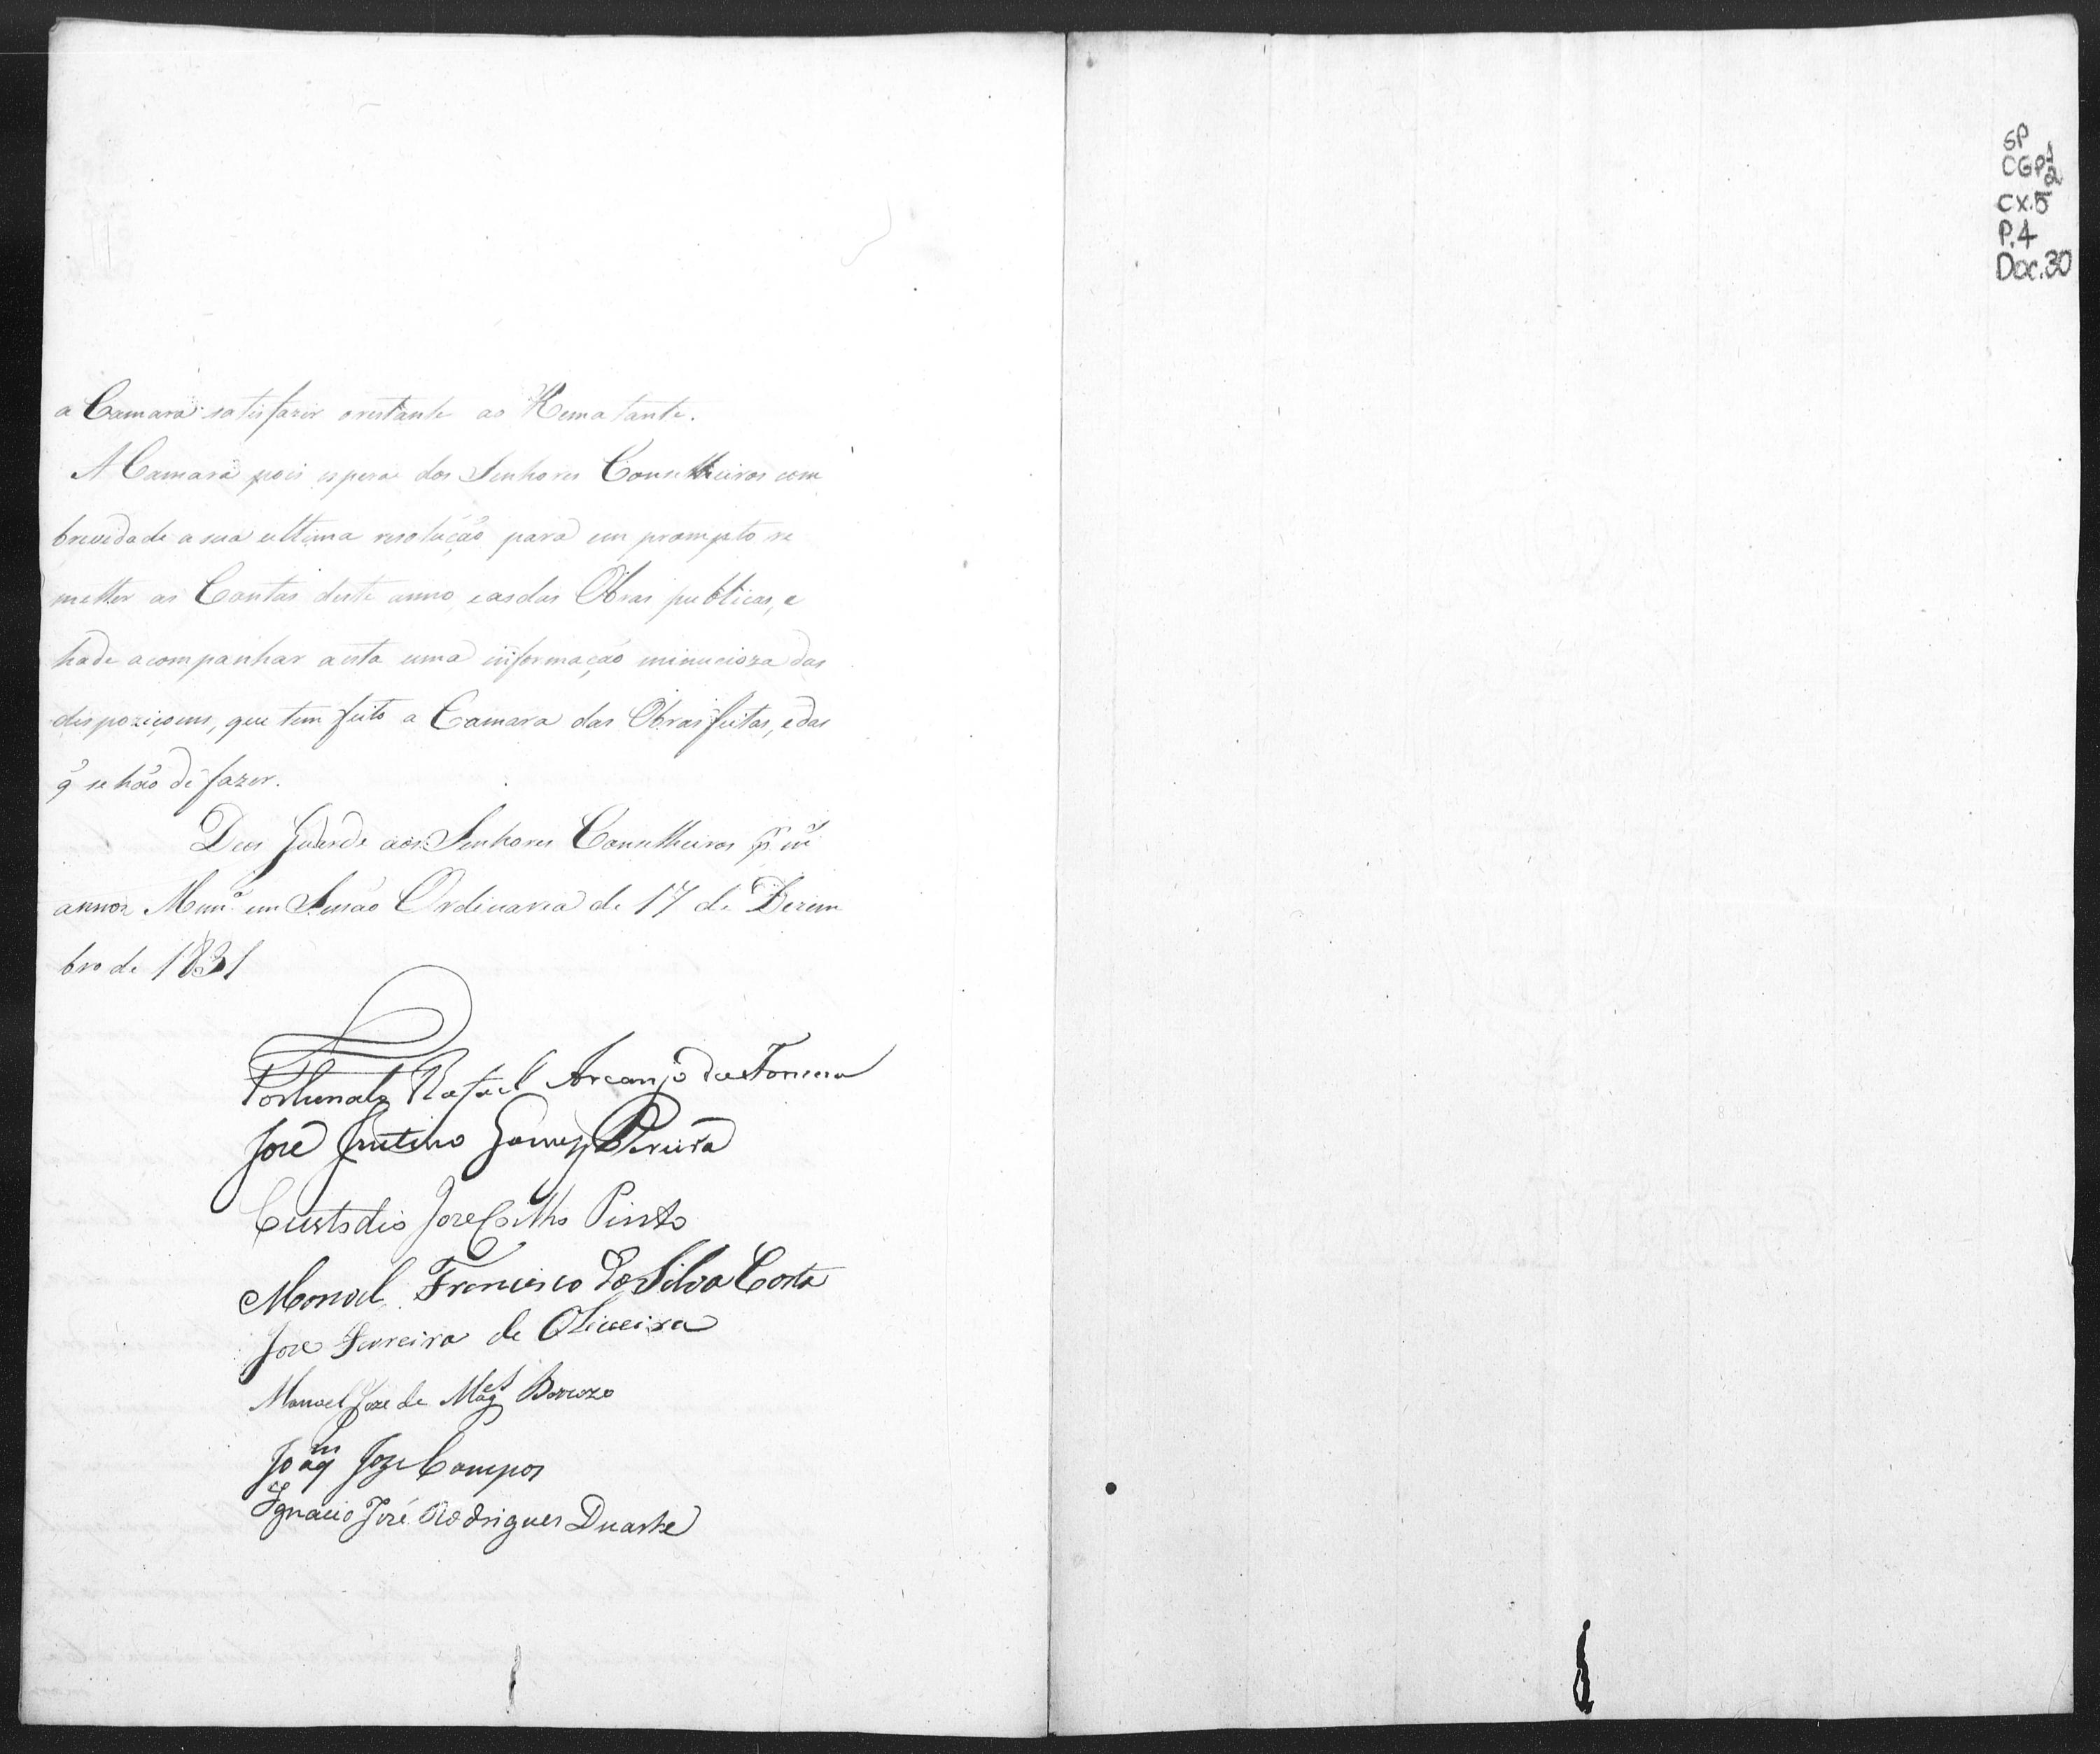 a Camara satisfazer orestante ao Rematante.
A Camara pois espera dos Senhores Conselheiros com
brevidade a sua ultima resolução para em prompto re
metter as Contas deste anno, easdas Obras publicas, e
hade acompanhar aesta uma informação minucioza das
dispoziçoens, que tem feito a Camara das Obras feitas, edas
q̃ se hão de fazer.
Deos Guarde aos Senhores Conselheiros p.r m.s
annos em Sessão Ordinaria de 17 de Dezem
bro de 1831
Fortunato Rafael Arcanjo da Fonseca
José Justino Gomes Pereira
Custodio Joze Coelho Pinto
Manoel Francisco da Silva Costa
Joze Ferreira de Oliveira
Manoel Joze de Mag.es Barrozo
Joaq.m Joze Campos
Ignacio José Rodrigues Duarte
SP
CGP 1/2
CX.5
P.4
Doc.30